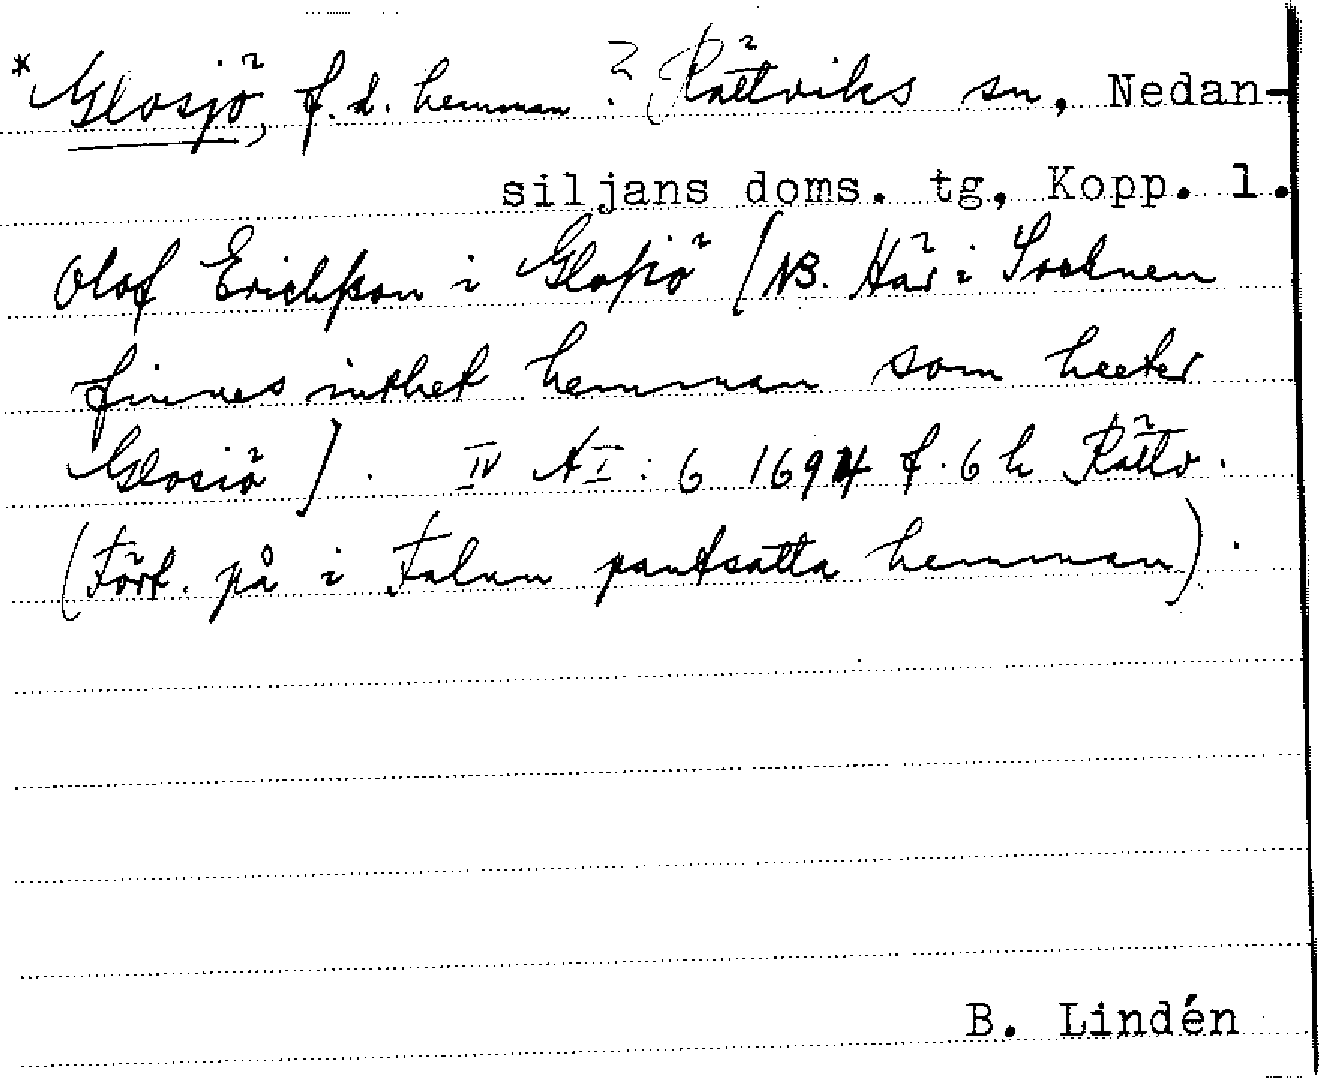 *Glosjö, f.d. hemman? (Rättviks sn, Nedan-
siljans doms. tg, Kopp. l.
Olof Erichsson i Glosiö [NB. Här i Socknen
finnes inthet hemman som heeter
Glosiö]. IV AI:6 1694 f. 6 h Rättv.
(Fört. på i Falun pantsatta hemman).
B. Lindén